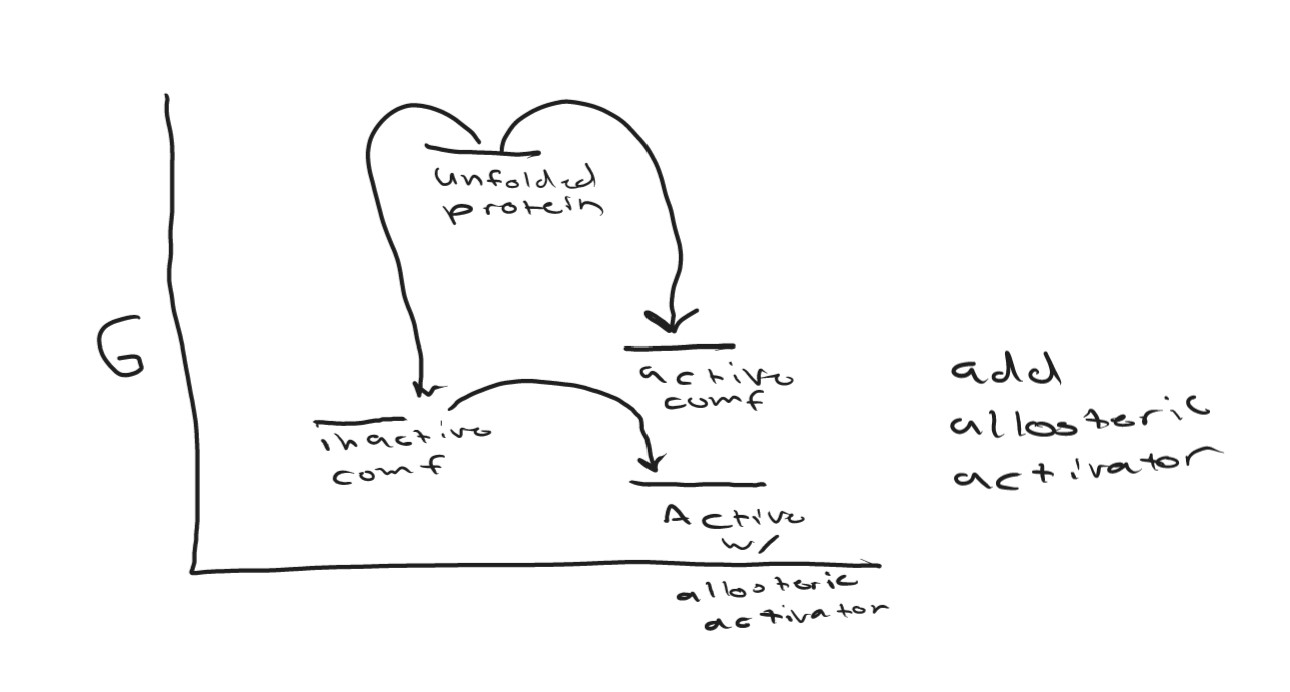 unfolded
protein
G
active
comf
inactive
comf
add
allosteric
activator
Active
w/
allosteric
activator